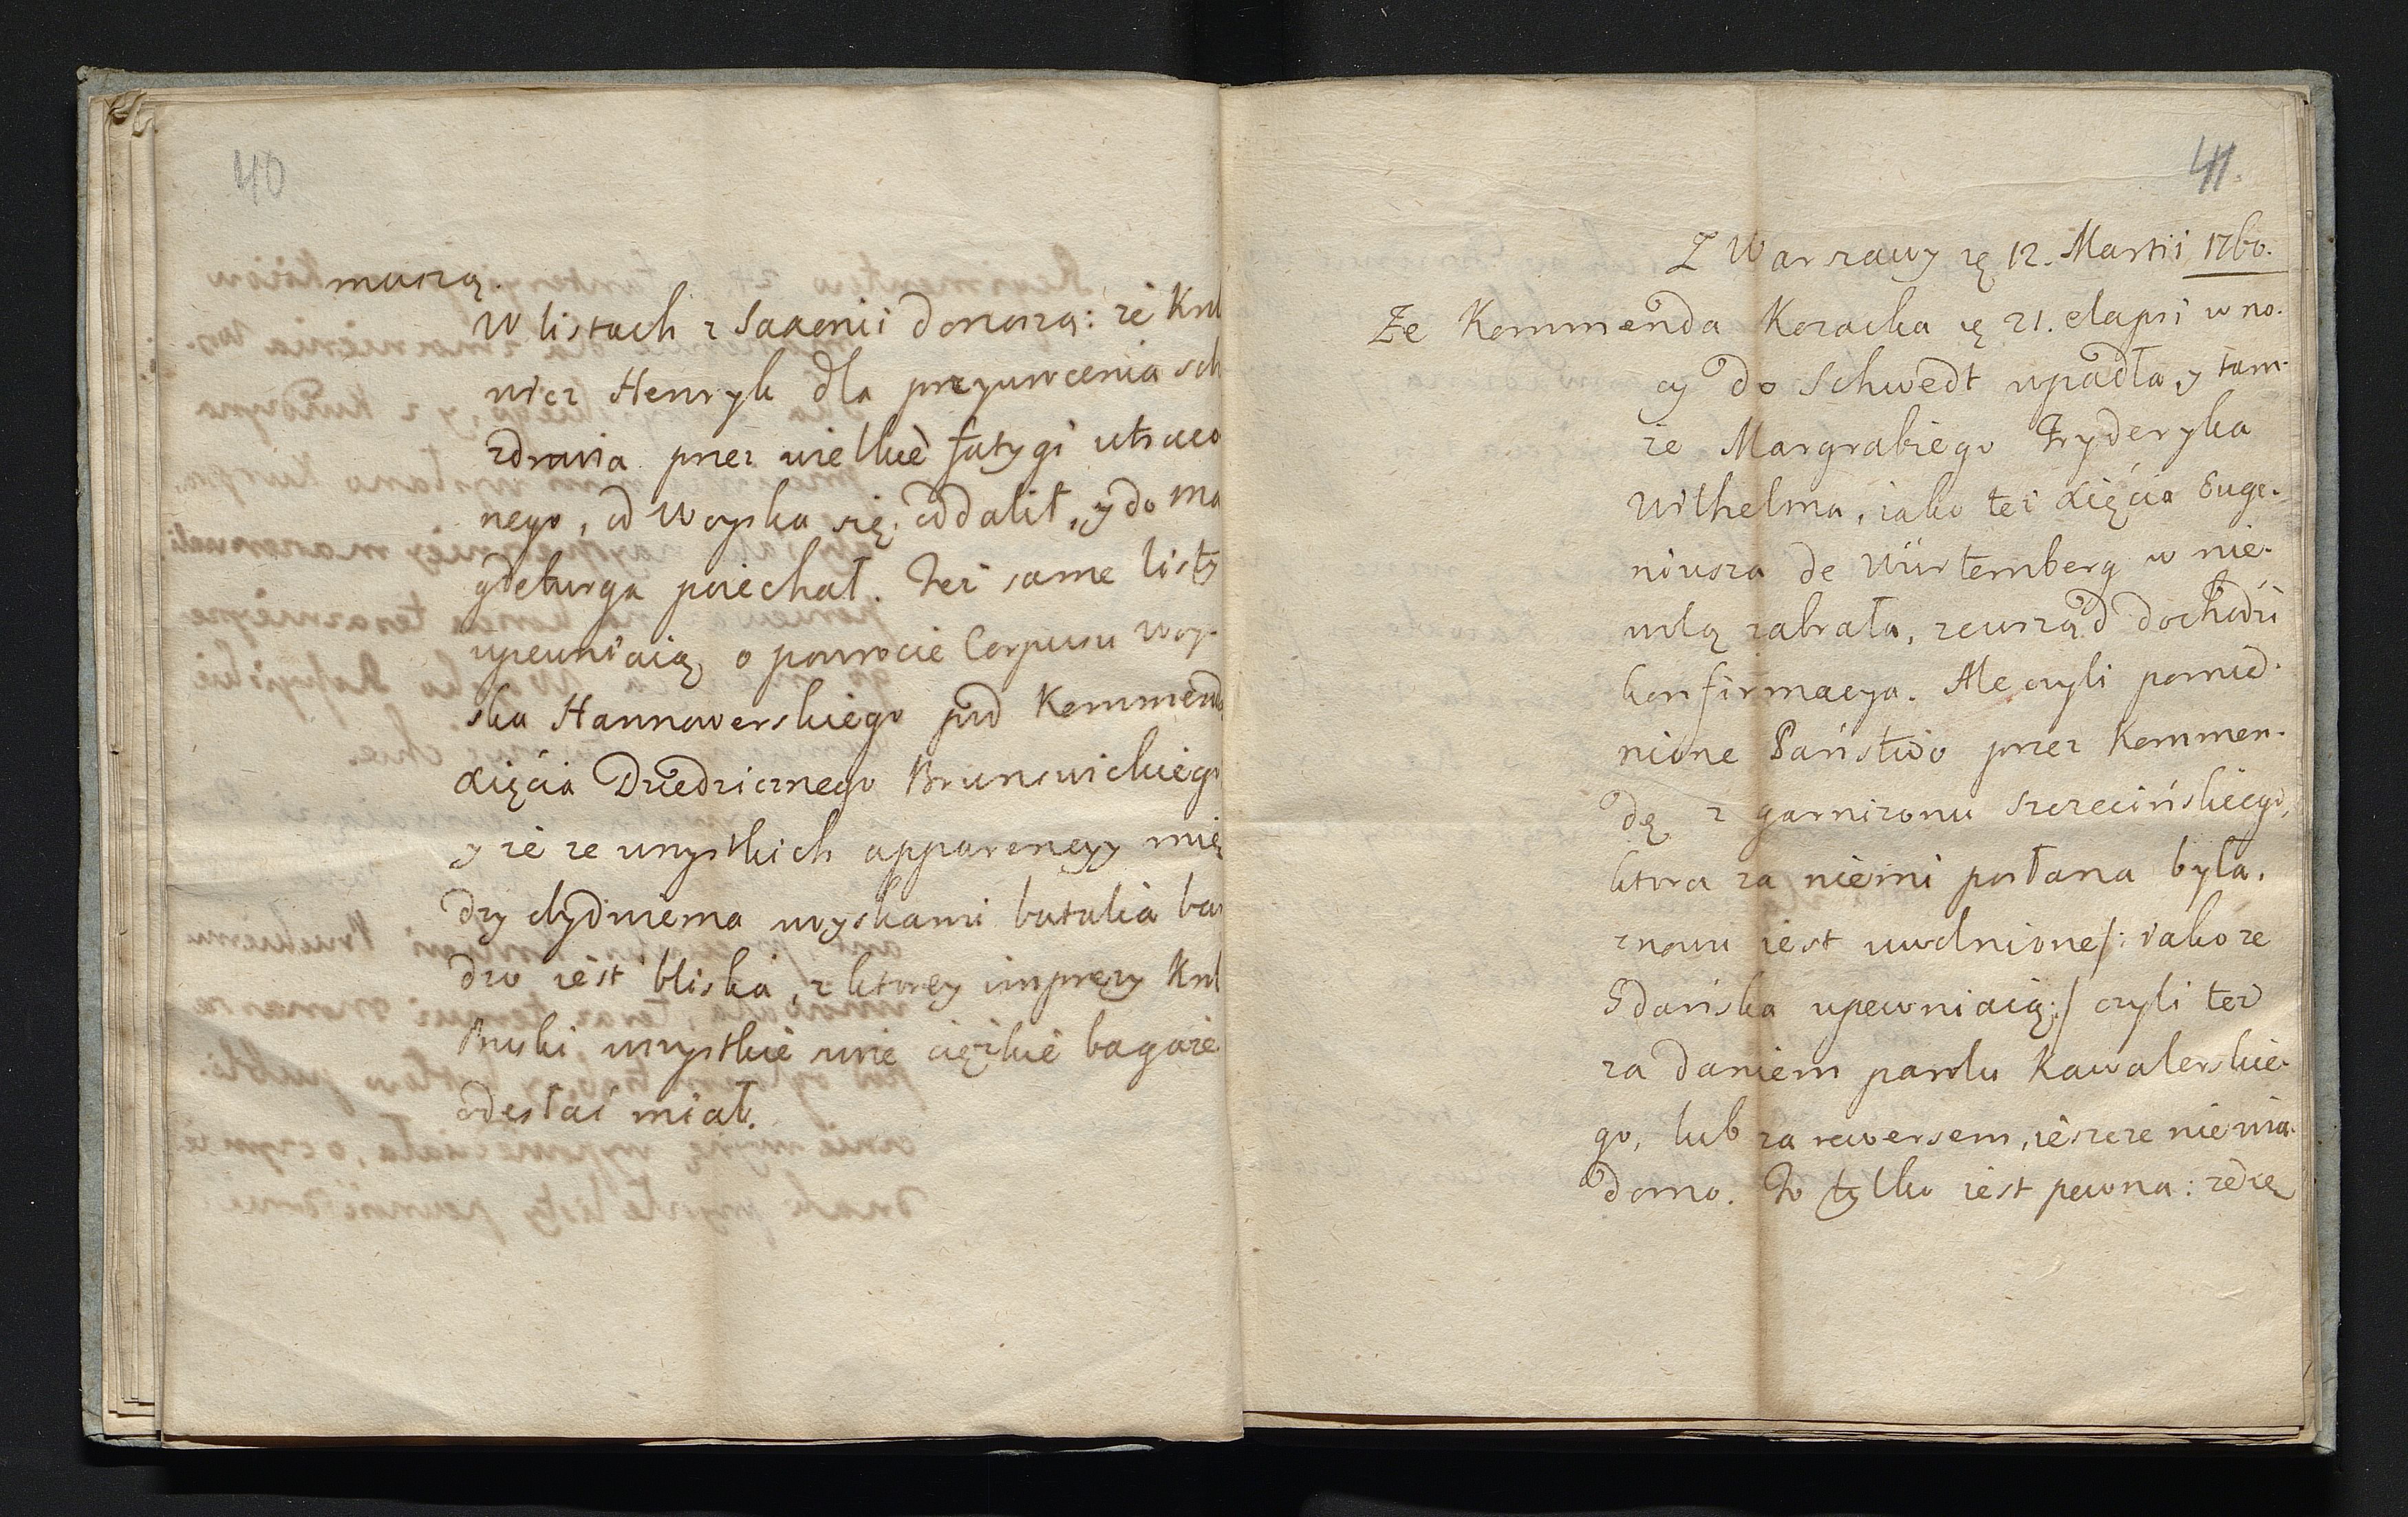 40
muszą.
W listach z Saxonii donoszą: że Krul
wicz Henryk dla przywrcenia
zdrowia przez wielkie fatygi utraco
nego, od Woyska się oddalił, y do Ma
gdeburga poiechał. Też same listy
upewniaią o powrocie Corpusu Woy-
ska Hannowerskiego pod Kommend
Xięcia Dziedzicznego Brunswickiego
y że ze wszystkich apparencyy mię
dzy obydwiema woyskami batalia bar
dzo iest bliska, z ktorey imprezy Krol
Pruski wszystkie swe cięzkie bagaże
odesłać miał.
41.
Z Warszawy 12. Martii 1760.
Że Kommenda Kozacka 21. elapsi w no-
cy do Schwedt wpadła, y tam-
że Margrabiego Fryderyka
Wilhelma, iako też Xięcia Euge-
niusza de Würtemberg w nie-
wolą zabrała, zewsząd dochodzi
konfirmacya. Ale czyli pomie-
nione Państwo przez Kommen-
dę z garnizonu Szczecińskiego,
ktora za niemi posłana była.
znowu iest uwolnione/: iako ze
Gdańska upewniaią:/ czyli też
za daniem parolu Kawalerskie-
go, lub za rewersem, ieszcze niewia-
domo. To tylko iest pewna: że